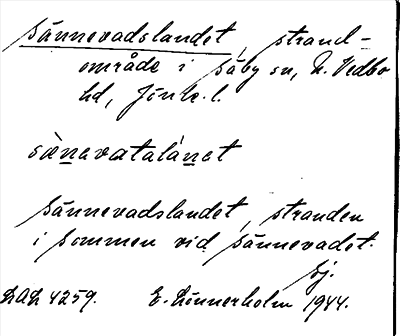 Sännevadslandet, strand-
område i Säby sn, N. Vedbo
hd, Jönk. l.
sænevatalànet
Sännevadslandet, stranden
i Sommen vid Sännevadet.
Sj.
LAL 4259. E. Linnerholm 1944.